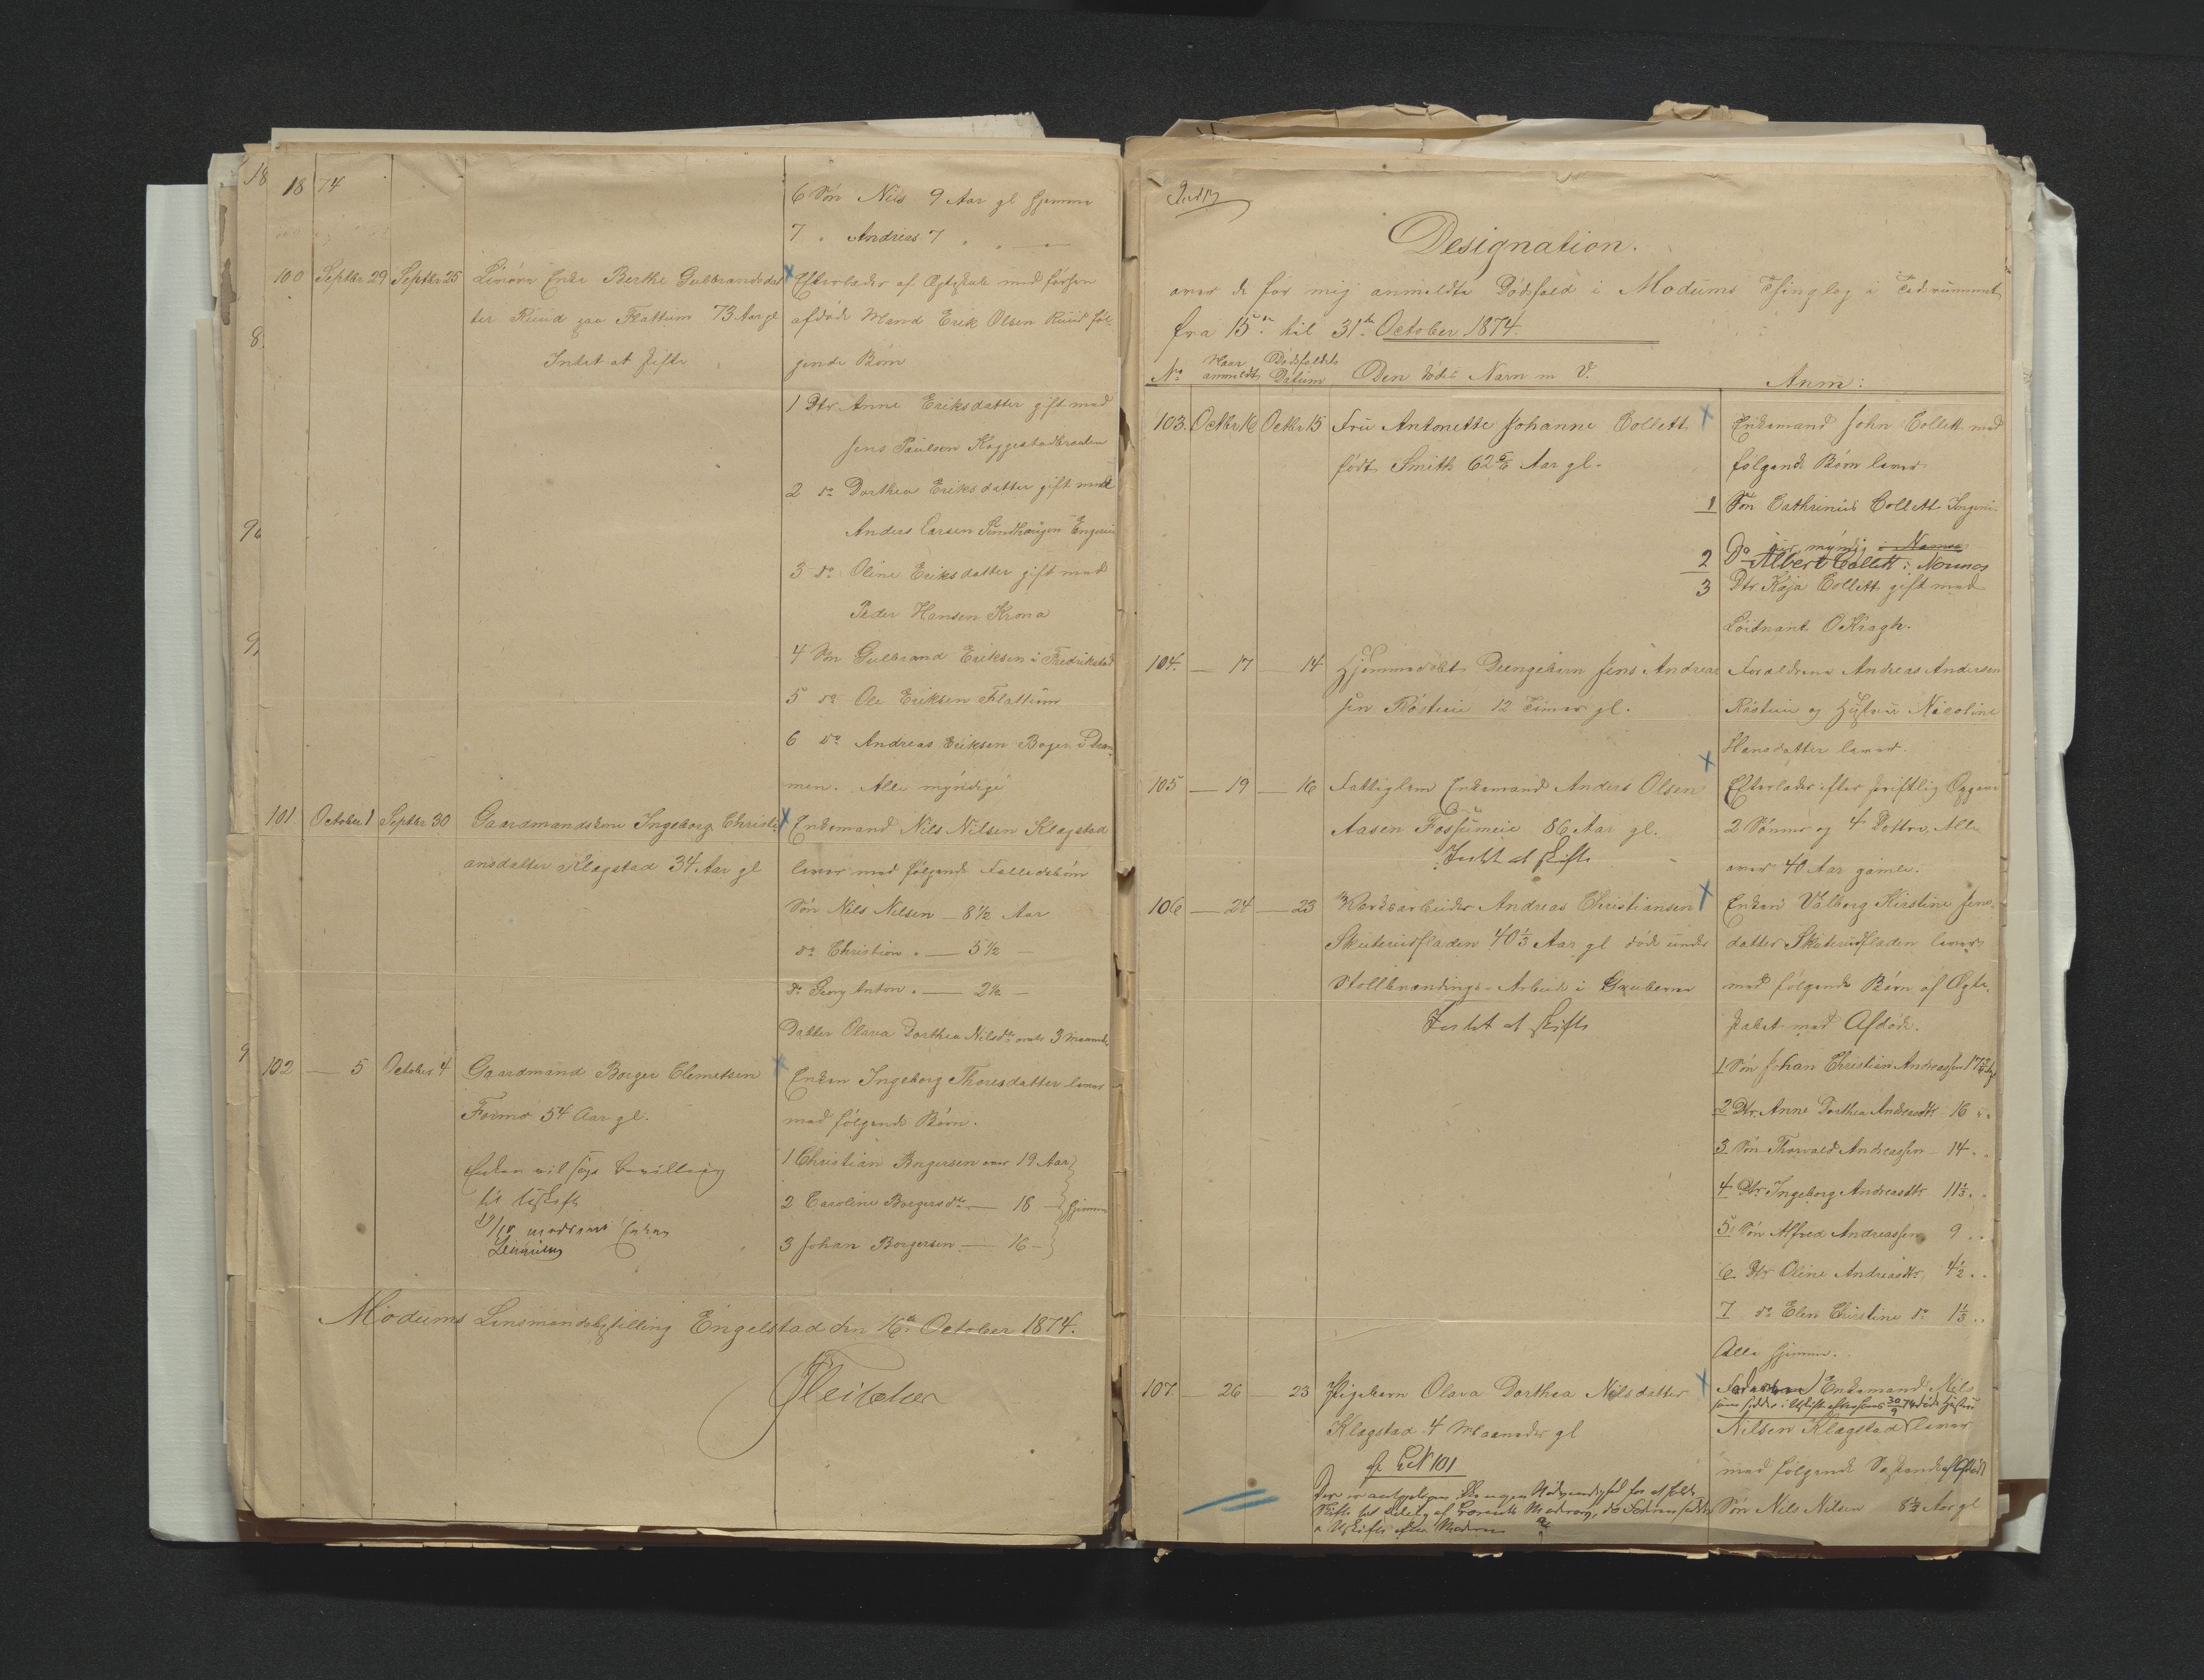 1874
6 Søn Nils 9 Aar gl hjemme
7 " Andreas 7 " " —
100 Septbr 29 Septbr 25 Enke Berthe Gulbrandsdat
ter Ruud paa Flattum 73 Aar gl
Intet at skifte
Efterlader af Ægteskab med forhen
afdøde Mand Erik Olsen Ruud føl-
gende Børn
1 Dtr Anne Eriksdatter gift med
Jens Paulsen Kaggestadbraaten
2 do Dorthea Eriksdatter gift med
Anders Larsen Sundhaugen
3 do Oline Eriksdatter gift med
Peder Hansen Krona
4 Søn Gulbrand Eriksen i Fredrikstad
5 do Ole Eriksen Flattum
6 do Andreas Eriksen Bager i Dram
men. Alle myndige
101 October 1 Septbr 30 Gaardmandskone Ingeborg Christi
ansdatter Klagstad 34 Aar gl
Enkemand Nils Nilsen Klagstad
lever med følgende Fælledsbørn
Søn Nils Nilsen — 8 1/2 Aar
do Christian " — 5 1/2 —
do Georg Anton " — 2 1/2 —
Datter Olava Dorthea Nilsdtr 3 Maaneder
102 — 5 October 4 Gaardmand Borger Clemetsen
Formo 54 Aar gl.
Enken vil søge Bevilling
til Uskifte
Enken
Enken Ingeborg Thoresdatter lever
med følgende Børn.
1 Christian Borgersen over 19 Aar
2 Caroline Borgersdtr — 18 — hjemme
3 Johan Borgersen — 16 —
Modums Lensmandsbestilling Engelstad den 16de October 1874.
Designation.
over de for mig anmeldte Dødsfald i Modums Thinglag i Tidsrummet
fra 15de til 31te October 1874.
No Naar anmeldt Dødsfaldets Datum Den Dødes Navn m. V. Anm:
103. Octbr 16 Octbr 15 Fru Antonette Johanne Collett
født Smith 62 5/6 Aar gl.
Enkemand John Collett med
følgende Børn lever
1 Søn Cathrinus Collett Ingeni-
eur, myndig i Namsos
2 Do Albert Collett i Namsos
3 Dtr. Kaja Collett gift med
Løitnant O Kragh.
104. — 17 — 14 Hjemmedøbt Drengebarn Jens Andreas
sen 12 Timer gl.
Forældrene Andreas Andersen
og Hustru Nicoline
Hansdatter lever.
105 — 19 — 16 Fattiglem Enkemand Anders Olsen
Aasen Fossumeie 86 Aar gl.
Intet at skifte
Efterlader efter skriftlig Opgave
2 Sønner og 4 Døttre, Alle
over 40 Aar gamle.
106 — 24 — 23 Værksarbeider Andreas Christiansen
Skuterudfladen 40 1/3 Aar gl døde under
Stollbrændings-Arbeide i Gruberne
Intet at skifte
Enken Valborg Kirstine Jens-
datter Skuterudfladen lever
med følgende Børn af Ægte-
skabet med Afdøde.
1 Søn Johan Christian Andreassen
2 Dtr. Anne Dorthea Andreasdtr 16 " "
3 Søn Thorvald Andreassen — 14 " "
4 Dtr. Ingeborg Andreasdtr 11 1/3 " "
5 Søn Alfred Andreassen 9 " "
6 Dtr Oline Andreasdtr. 4 1/2 " "
7 do Elen Christine do 1 1/3 " "
Alle hjemme.
107. — 26 — 23 Pigebarn Olava Dorthea Nilsdatter
Klagstad 4 Maaneder gl
cf No 101
Enkemand Nils
som sidder i Uskifte efter hans 30/9 74 døde Hustru
Nilsen Klagstad lever
med følgende Søskende af Afdøde
Søn Nils Nilsen 8 1/2 Aar gl
i Uskifte efter Moderen